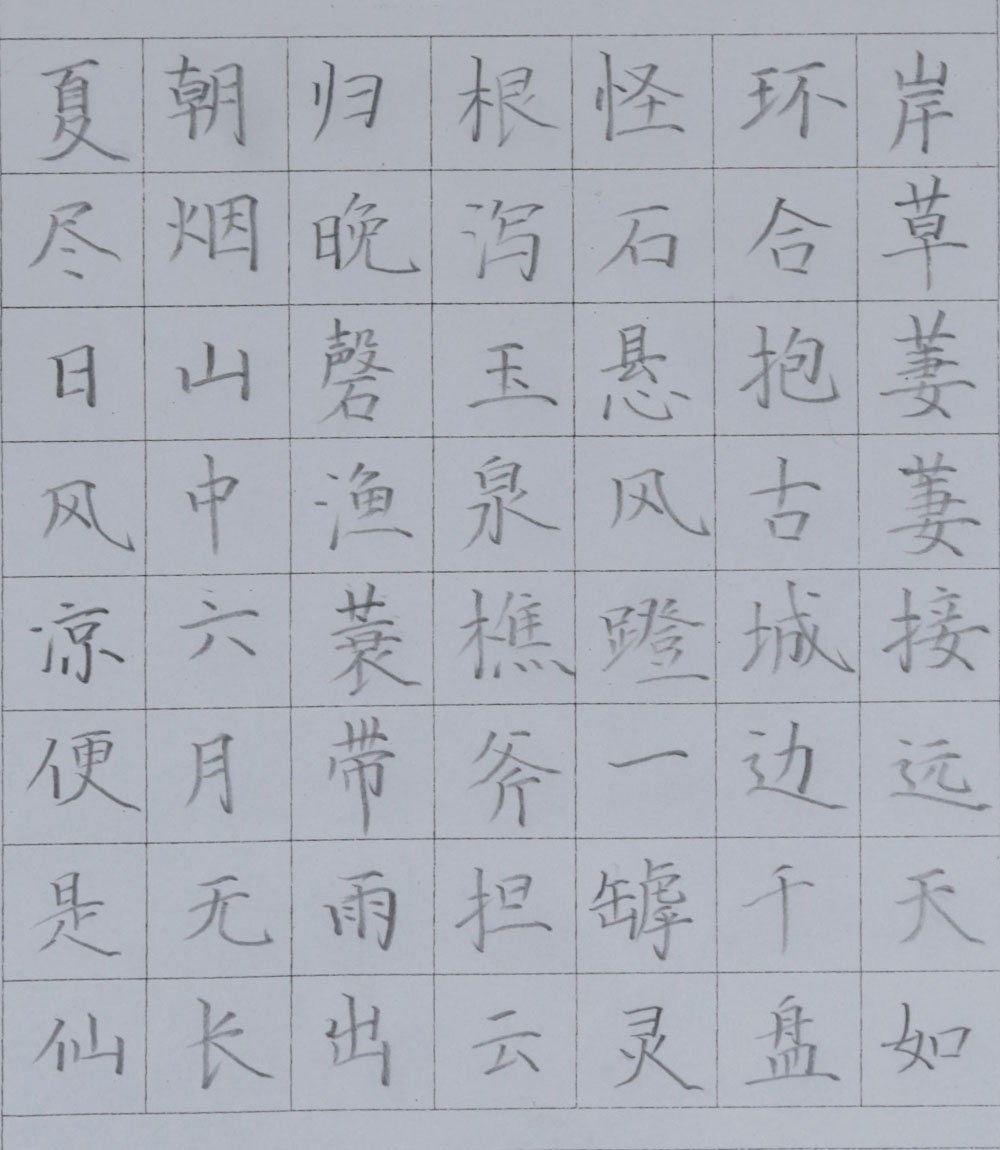 岸草萋萋接远天如
环合抱古城边千盘
怪石悬风蹬一罅灵
根泻玉泉樵斧担云
归晚磬渔蓑带雨出
朝烟山中六月无长
夏尽日风凉便是仙